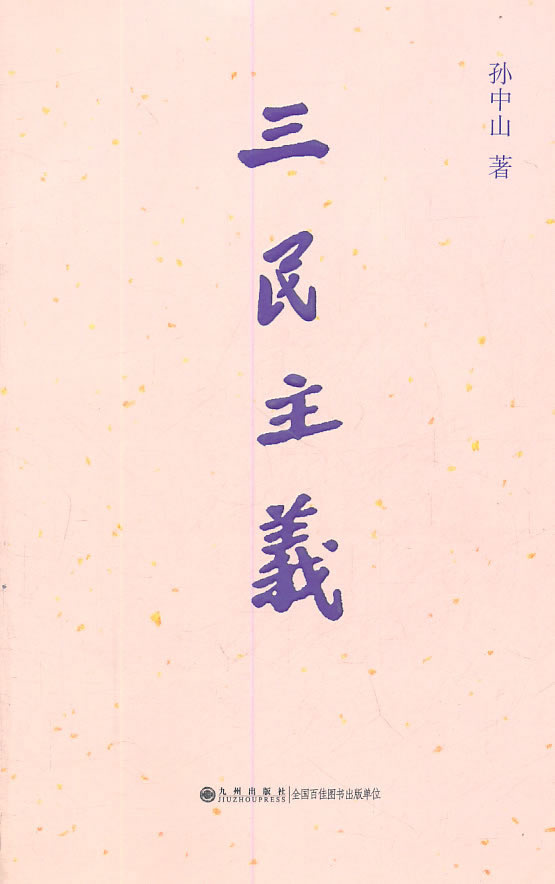 孙中山 著
三民主義
九州出版社
JIUZHOUPRESS
全国百佳图书出版单位